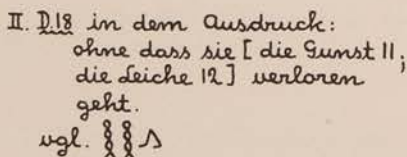 II. D.18 in dem Ausdruck:
ohne dass sie [die Gunst 11;
die Leiche 12] verloren
geht.
vgl. 𓎛𓎛𓂻